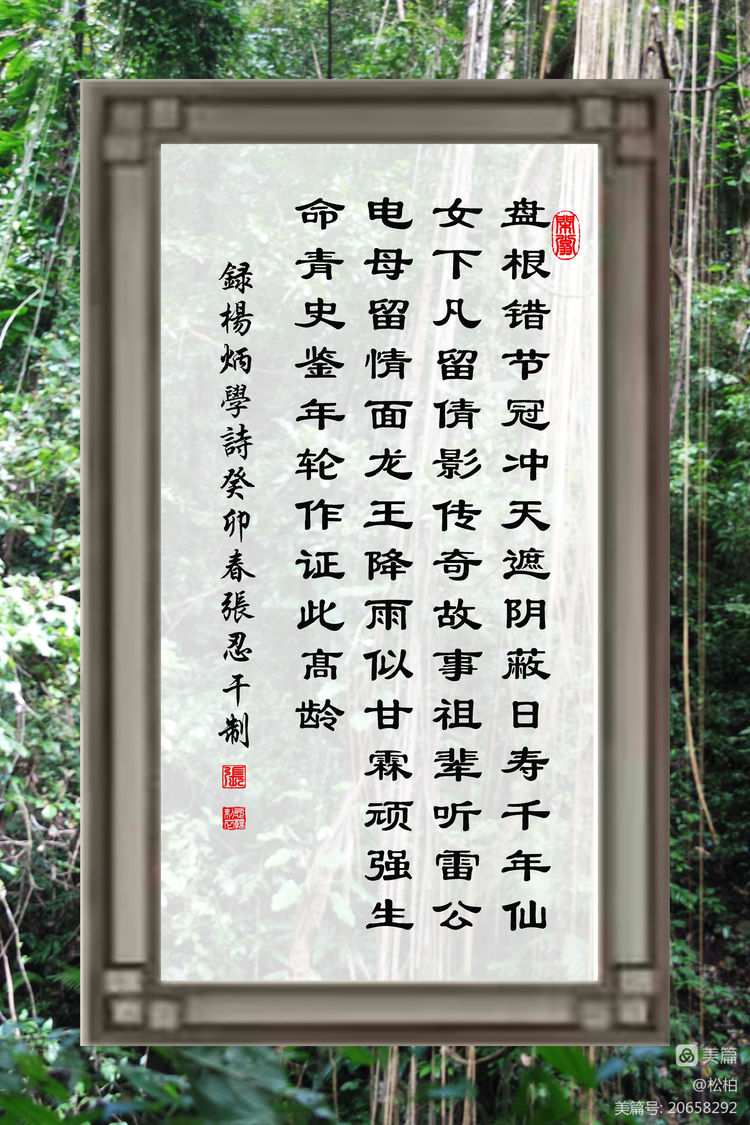 盘根错节冠冲天遮阴蔽日寿千年仙
女下凡留倩影传奇故事祖辈听雷公
电母留情面龙王降雨似甘霖顽强生
命青史鉴年轮作证此高龄
録楊炳學詩癸卯春張忍干制
張
美篇
@松柏
美篇号: 20658292